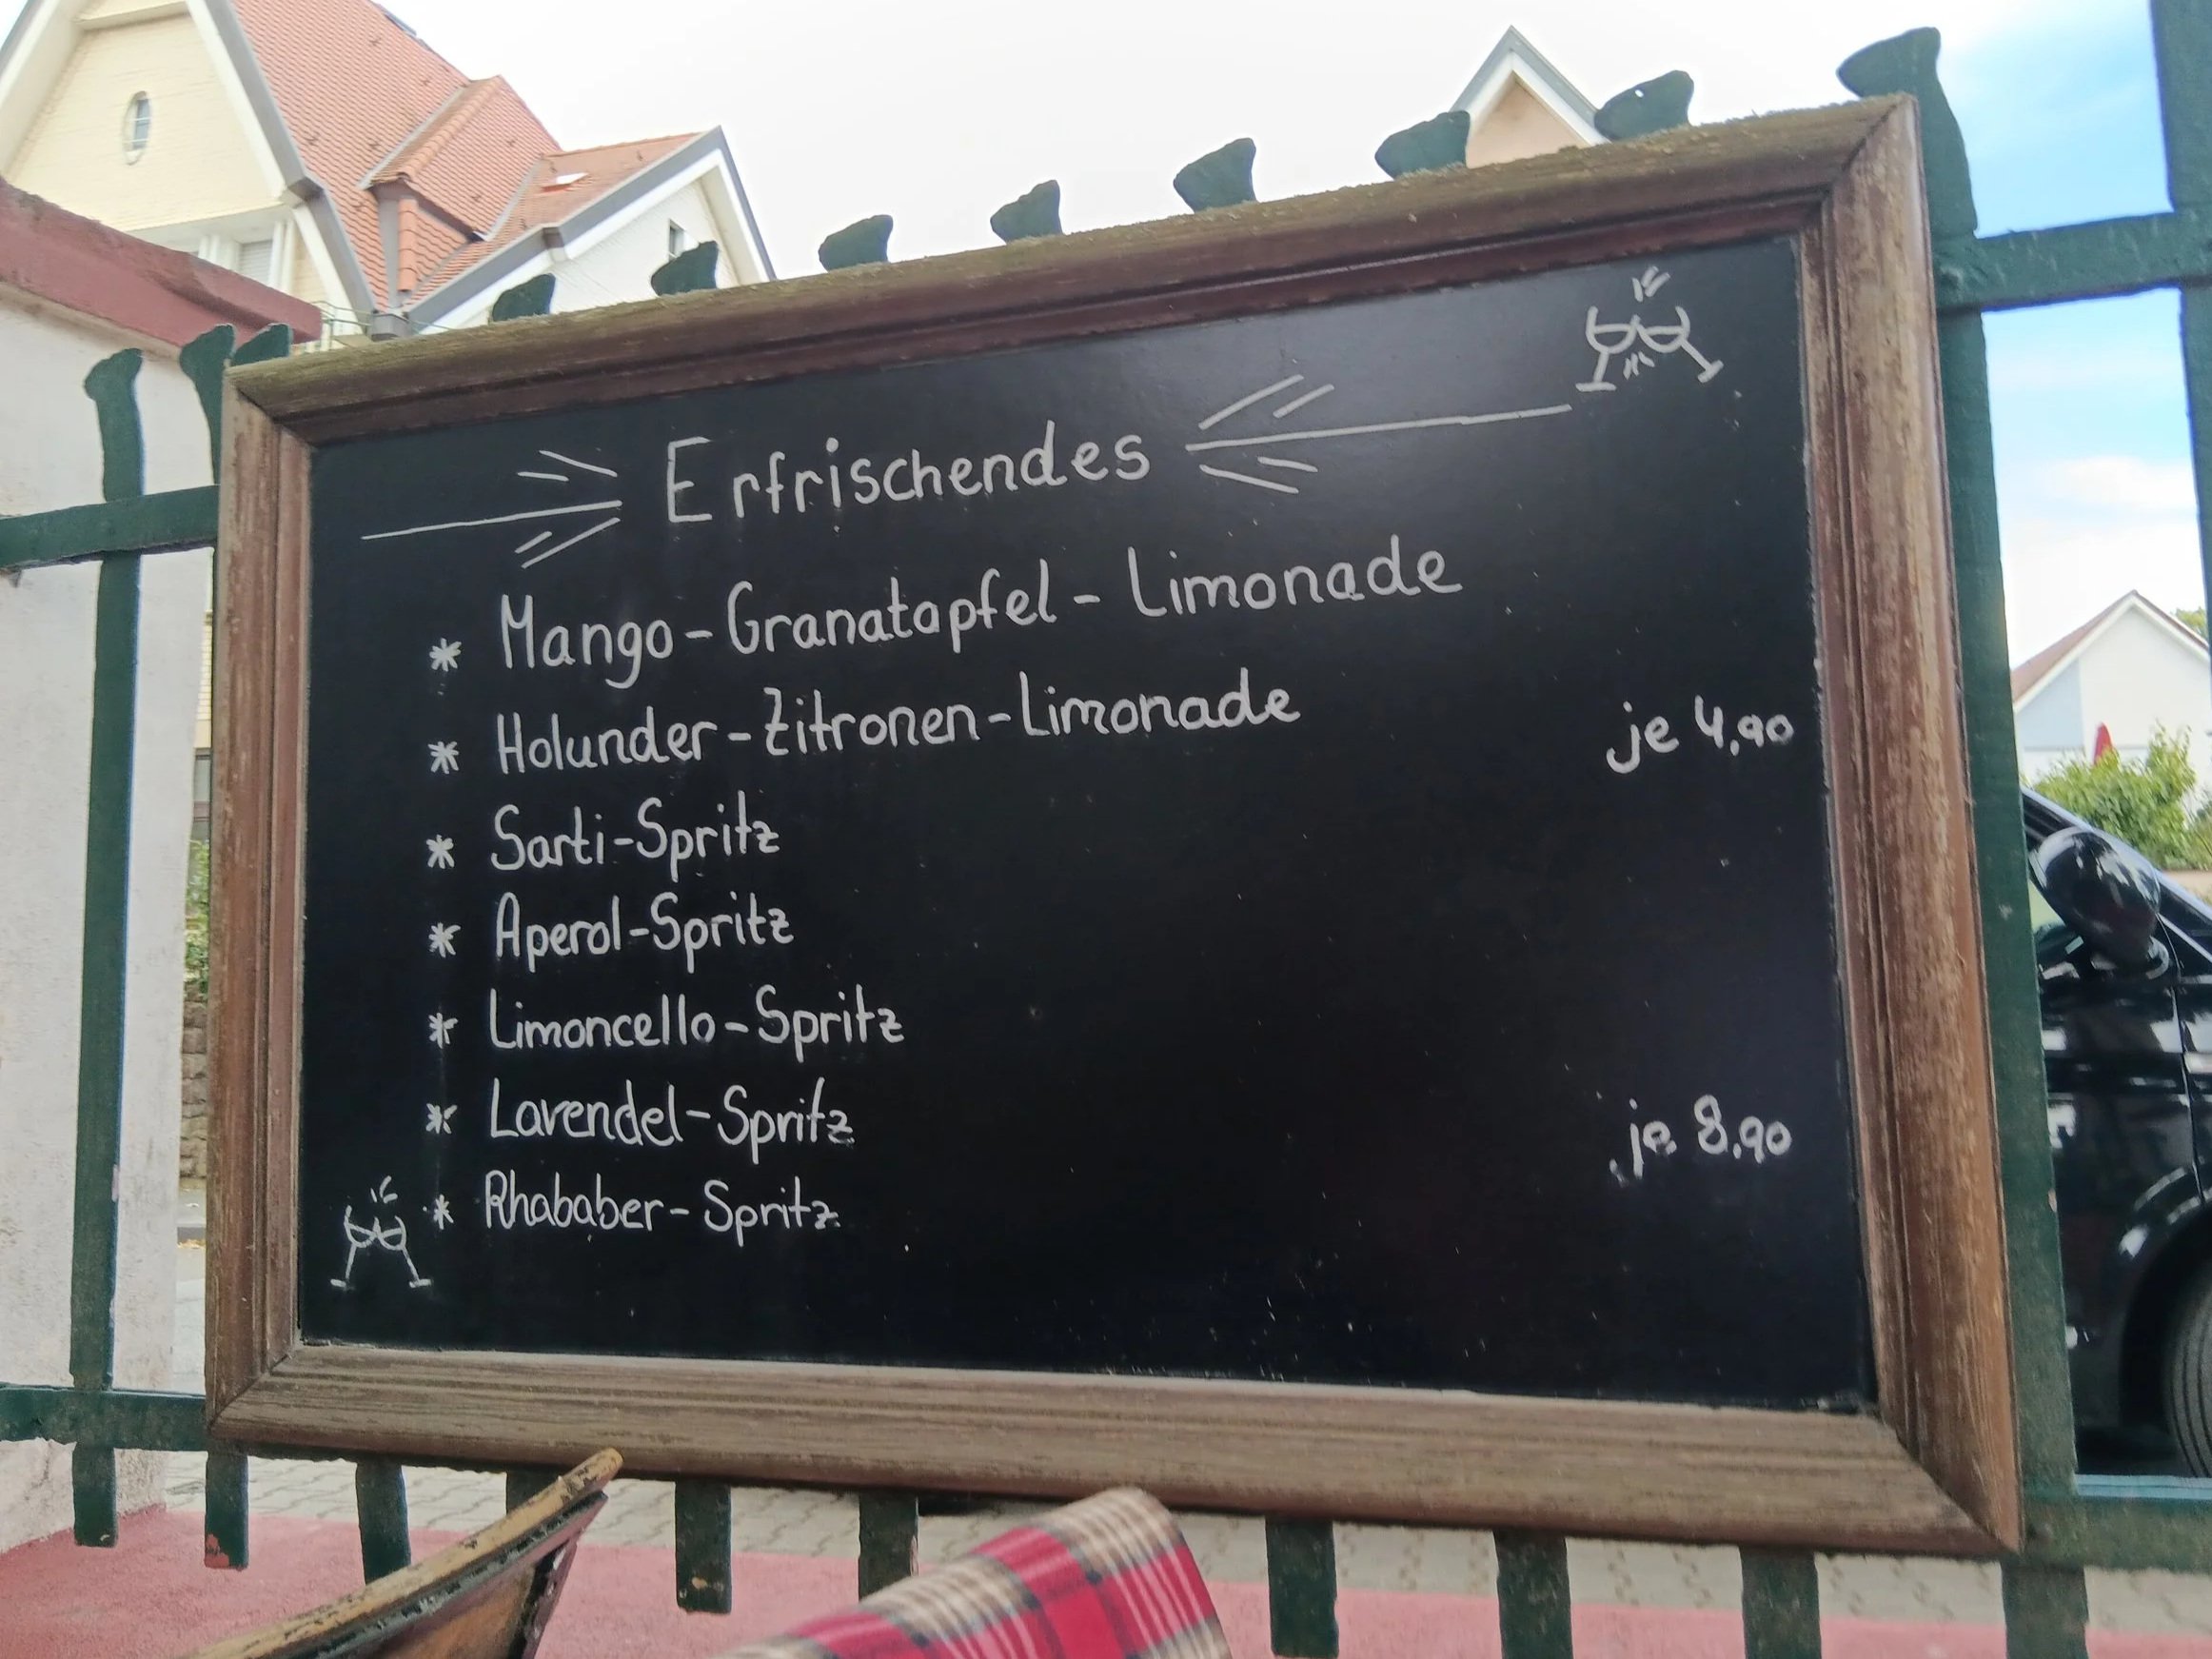 Erfrischendes
* Mango-Granatapfel-Limonade
* Holunder-Zitronen-Limonade je 4,90
* Sarti-Spritz
* Aperol-Spritz
* Limoncello-Spritz
* Lavendel-Spritz je 8,90
* Rhababer-Spritz